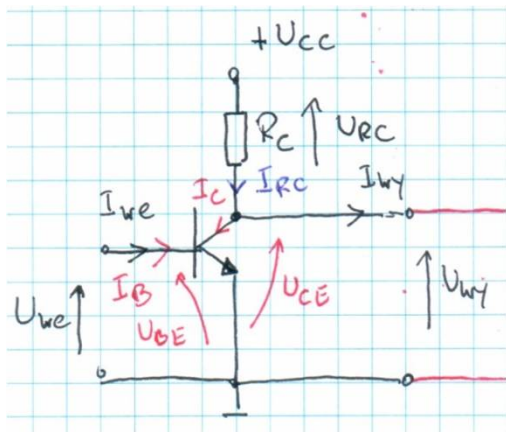 +UCC
RC
URC
IC
IRC
Iwe
Iwy
IB
UCE
Uwe
UBE
Uwy